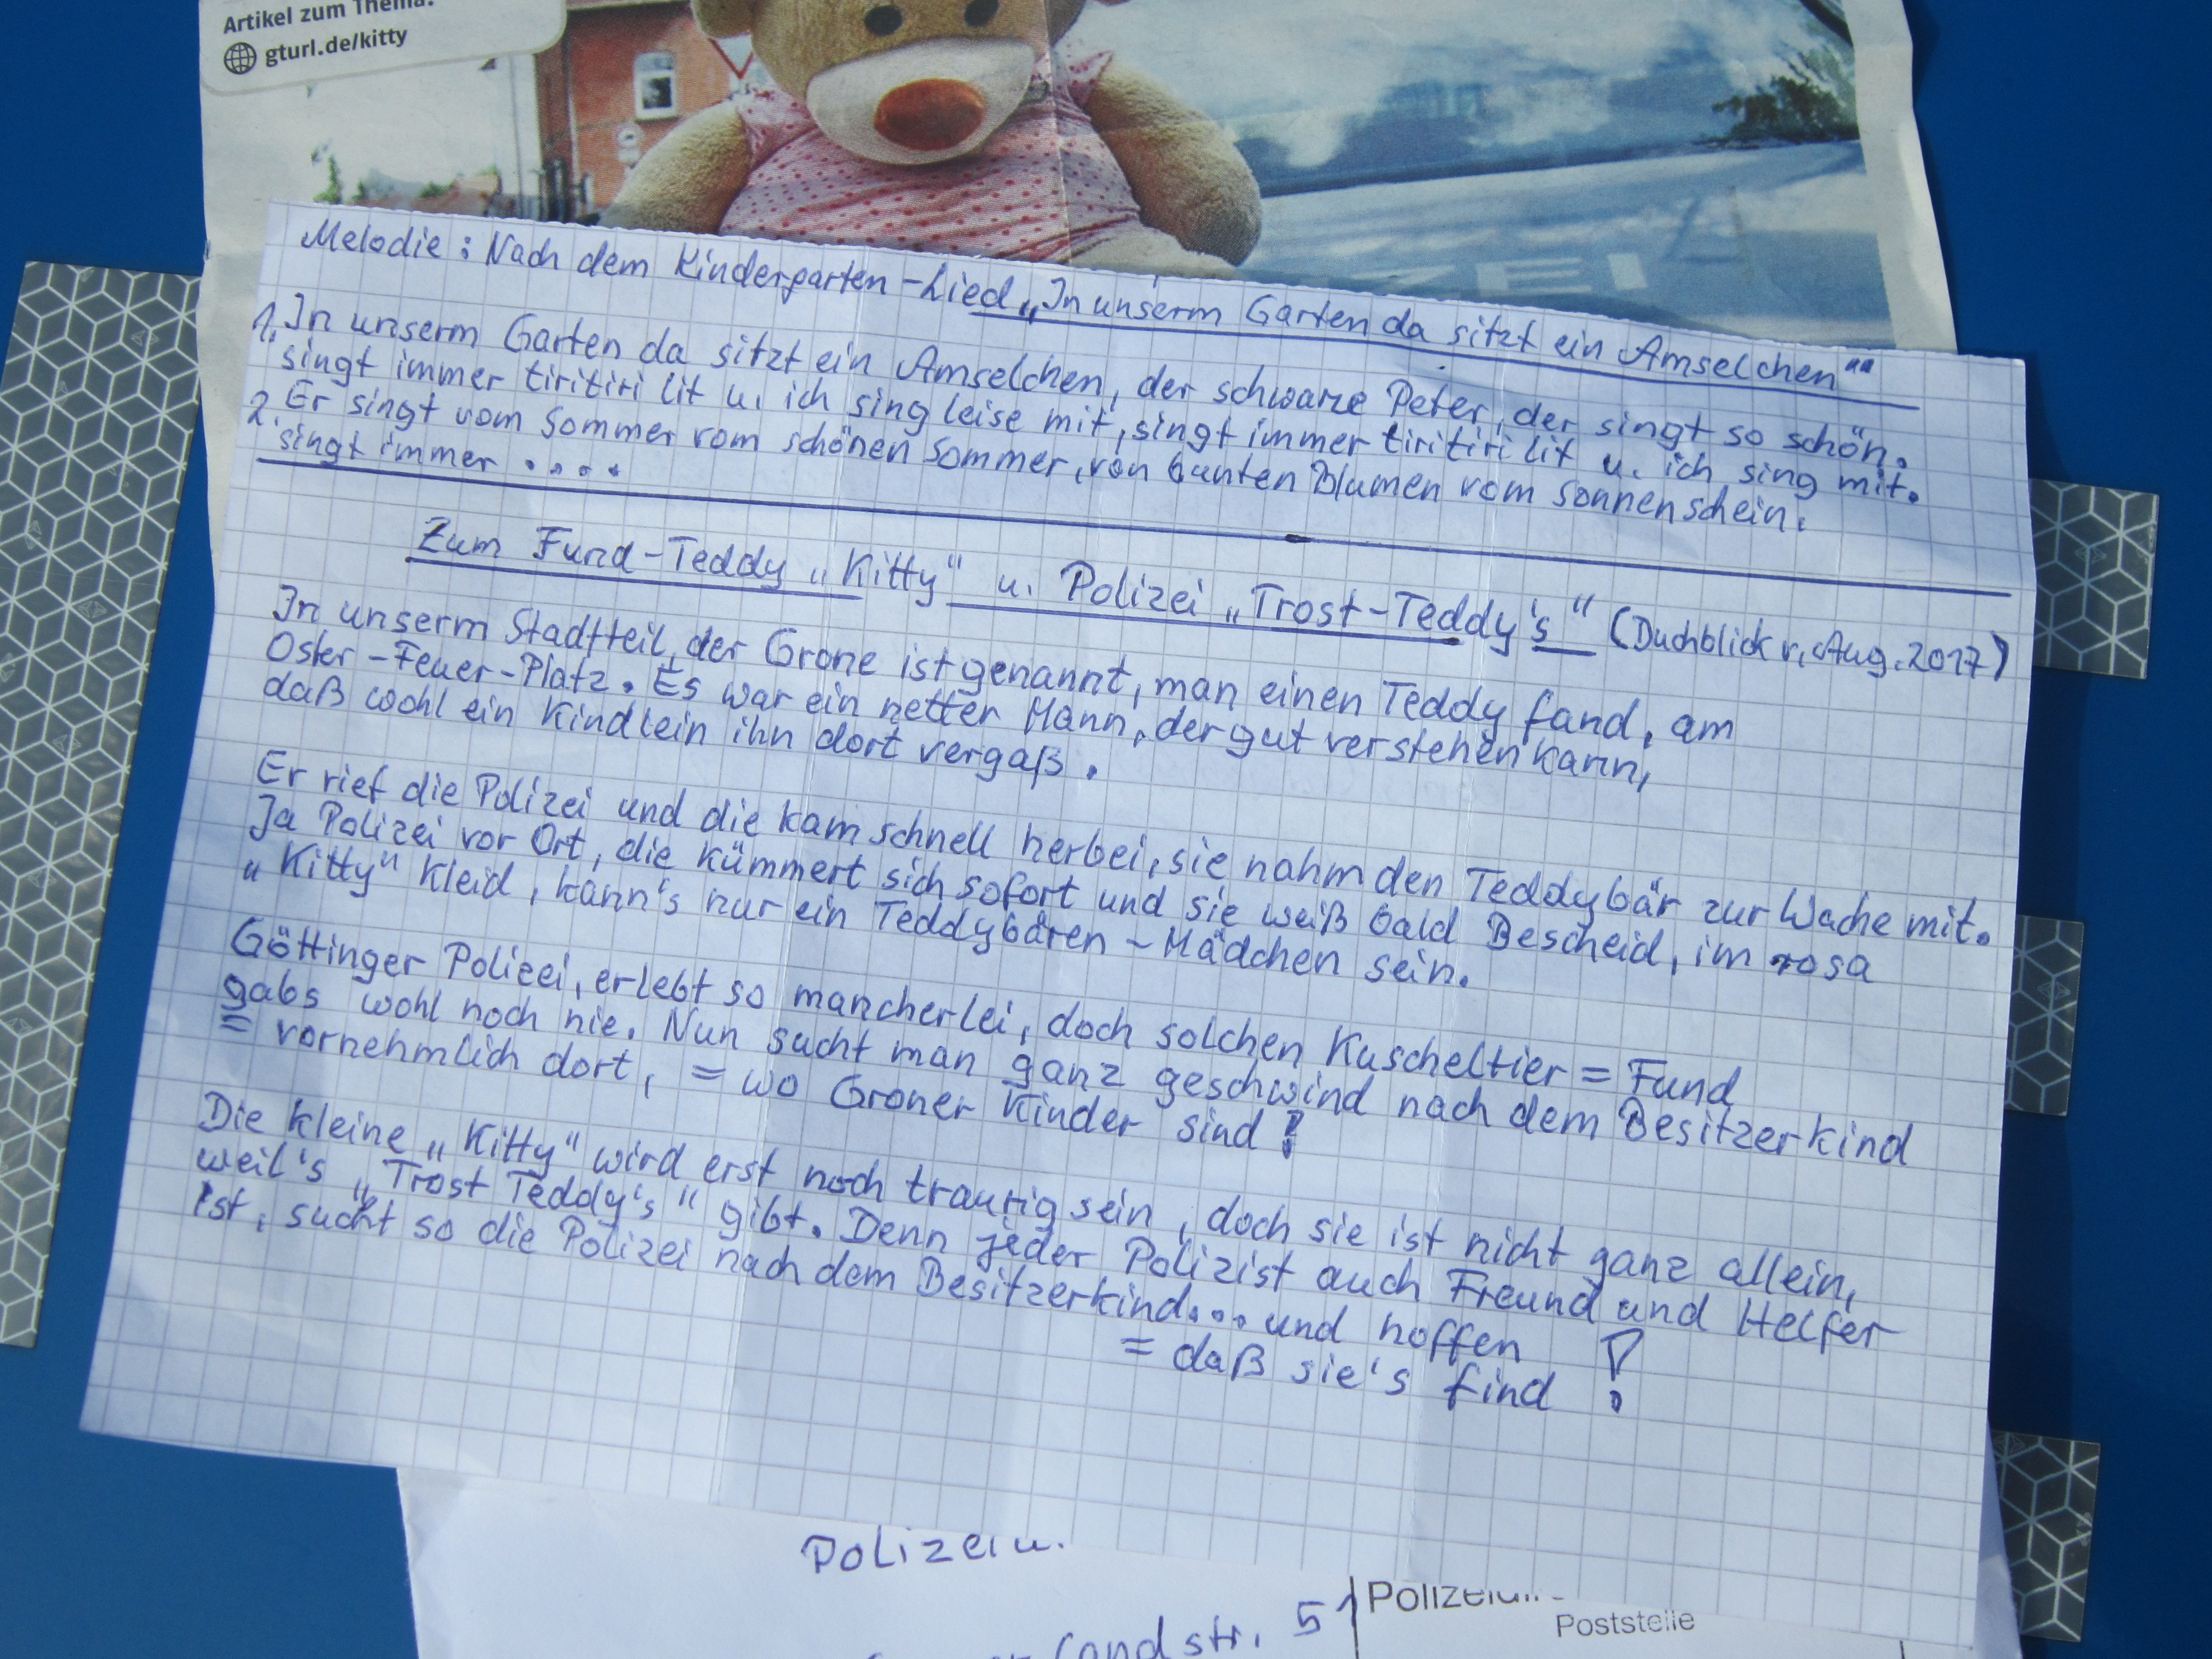 Artikel zum Thema:
gturl.de/kitty
ZEI
Melodie: Nach dem Kindergarten-Lied „In unserm Garten da sitzt ein Amselchen"
1. In unserm Garten da sitzt ein Amselchen, der schwarze Peter, der singt so schön.
singt immer tiritiri lit u. ich sing leise mit, singt immer tiritiri lit u. ich sing mit.
2. Er singt vom Sommer vom schönen Sommer, von bunten Blumen vom Sonnenschein.
singt immer ....
Zum Fund-Teddy „Kitty" u. Polizei „Trost-Teddy's" (Duchblick v. Aug. 2017)
In unserm Stadtteil, der Grone ist genannt, man einen Teddy fand, am
Oster-Feuer-Platz. Es war ein netter Mann, der gut verstehen kann,
daß wohl ein Kindlein ihn dort vergaß.
Er rief die Polizei und die kam schnell herbei, sie nahm den Teddybär zur Wache mit.
Ja Polizei vor Ort, die kümmert sich sofort und sie weiß bald Bescheid, im rosa
„Kitty" Kleid, kann's nur ein Teddybären-Mädchen sein.
Göttinger Polizei, erlebt so mancherlei, doch solchen Kuscheltier=Fund
gabs wohl noch nie. Nun sucht man ganz geschwind nach dem Besitzerkind
= vornehmlich dort, = wo Groner Kinder sind!
Die kleine „Kitty" wird erst noch traurig sein, doch sie ist nicht ganz allein,
weil's „Trost Teddy's" gibt. Denn jeder Polizist auch Freund und Helfer
ist, sucht so die Polizei nach dem Besitzerkind... und hoffen
= daß sie's find!
Poststelle
51